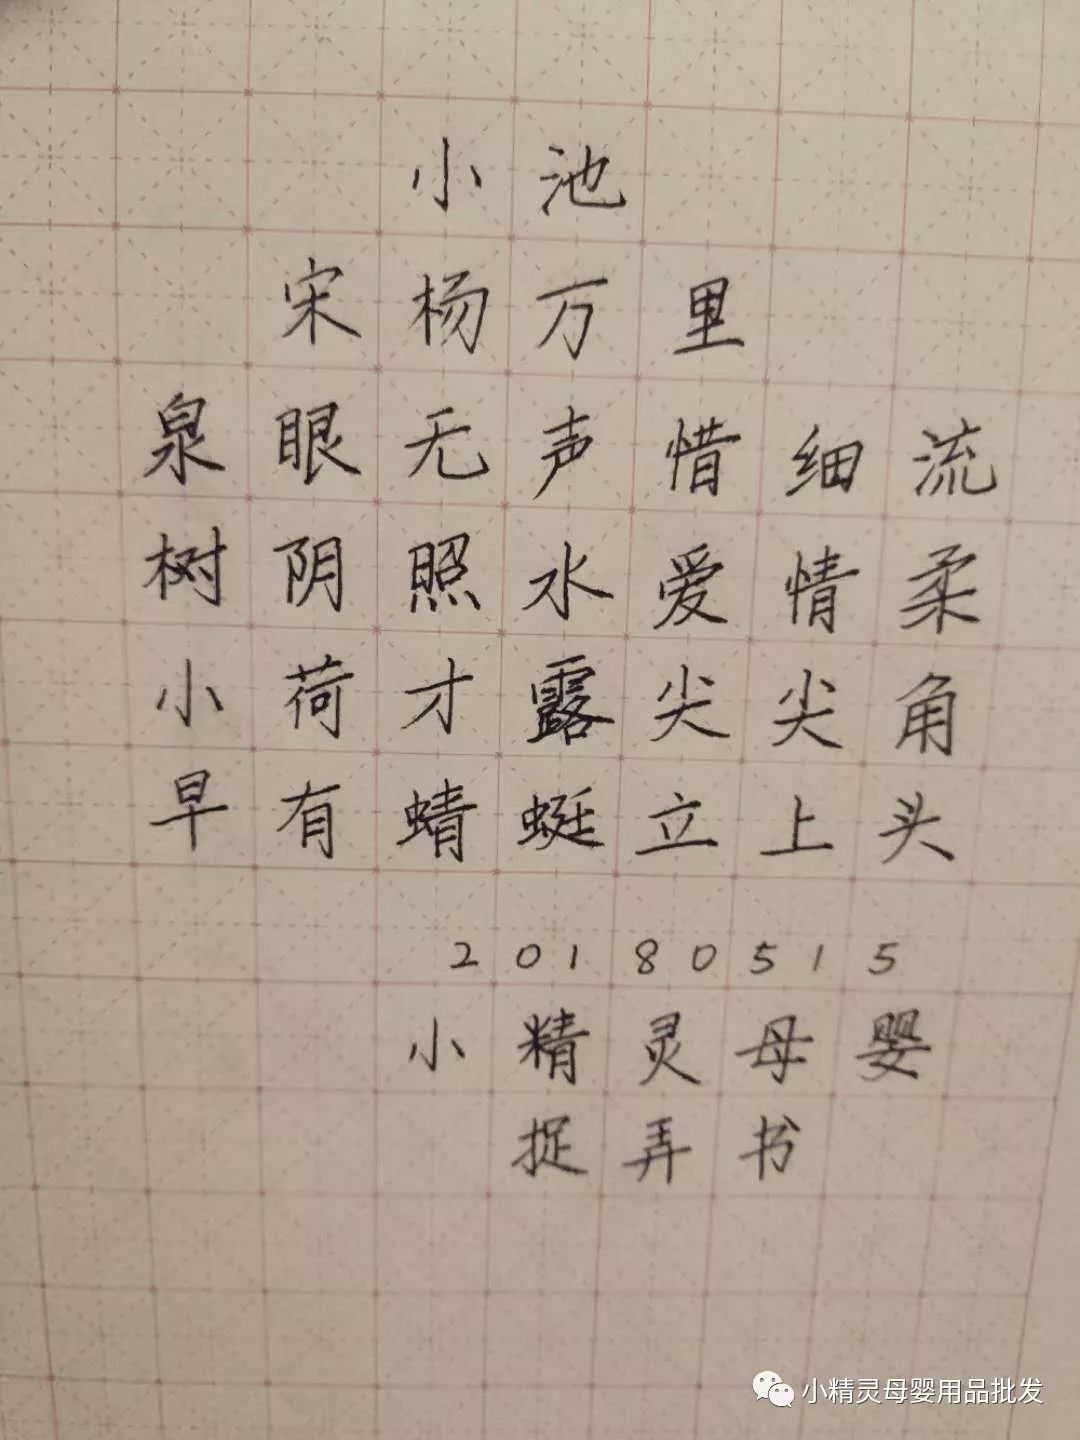 小池
宋杨万里
泉眼无声惜细流
树阴照水爱情柔
小荷才露尖尖角
早有蜻蜓立上头
20180515
小精灵母婴
捉弄书
小精灵母婴用品批发